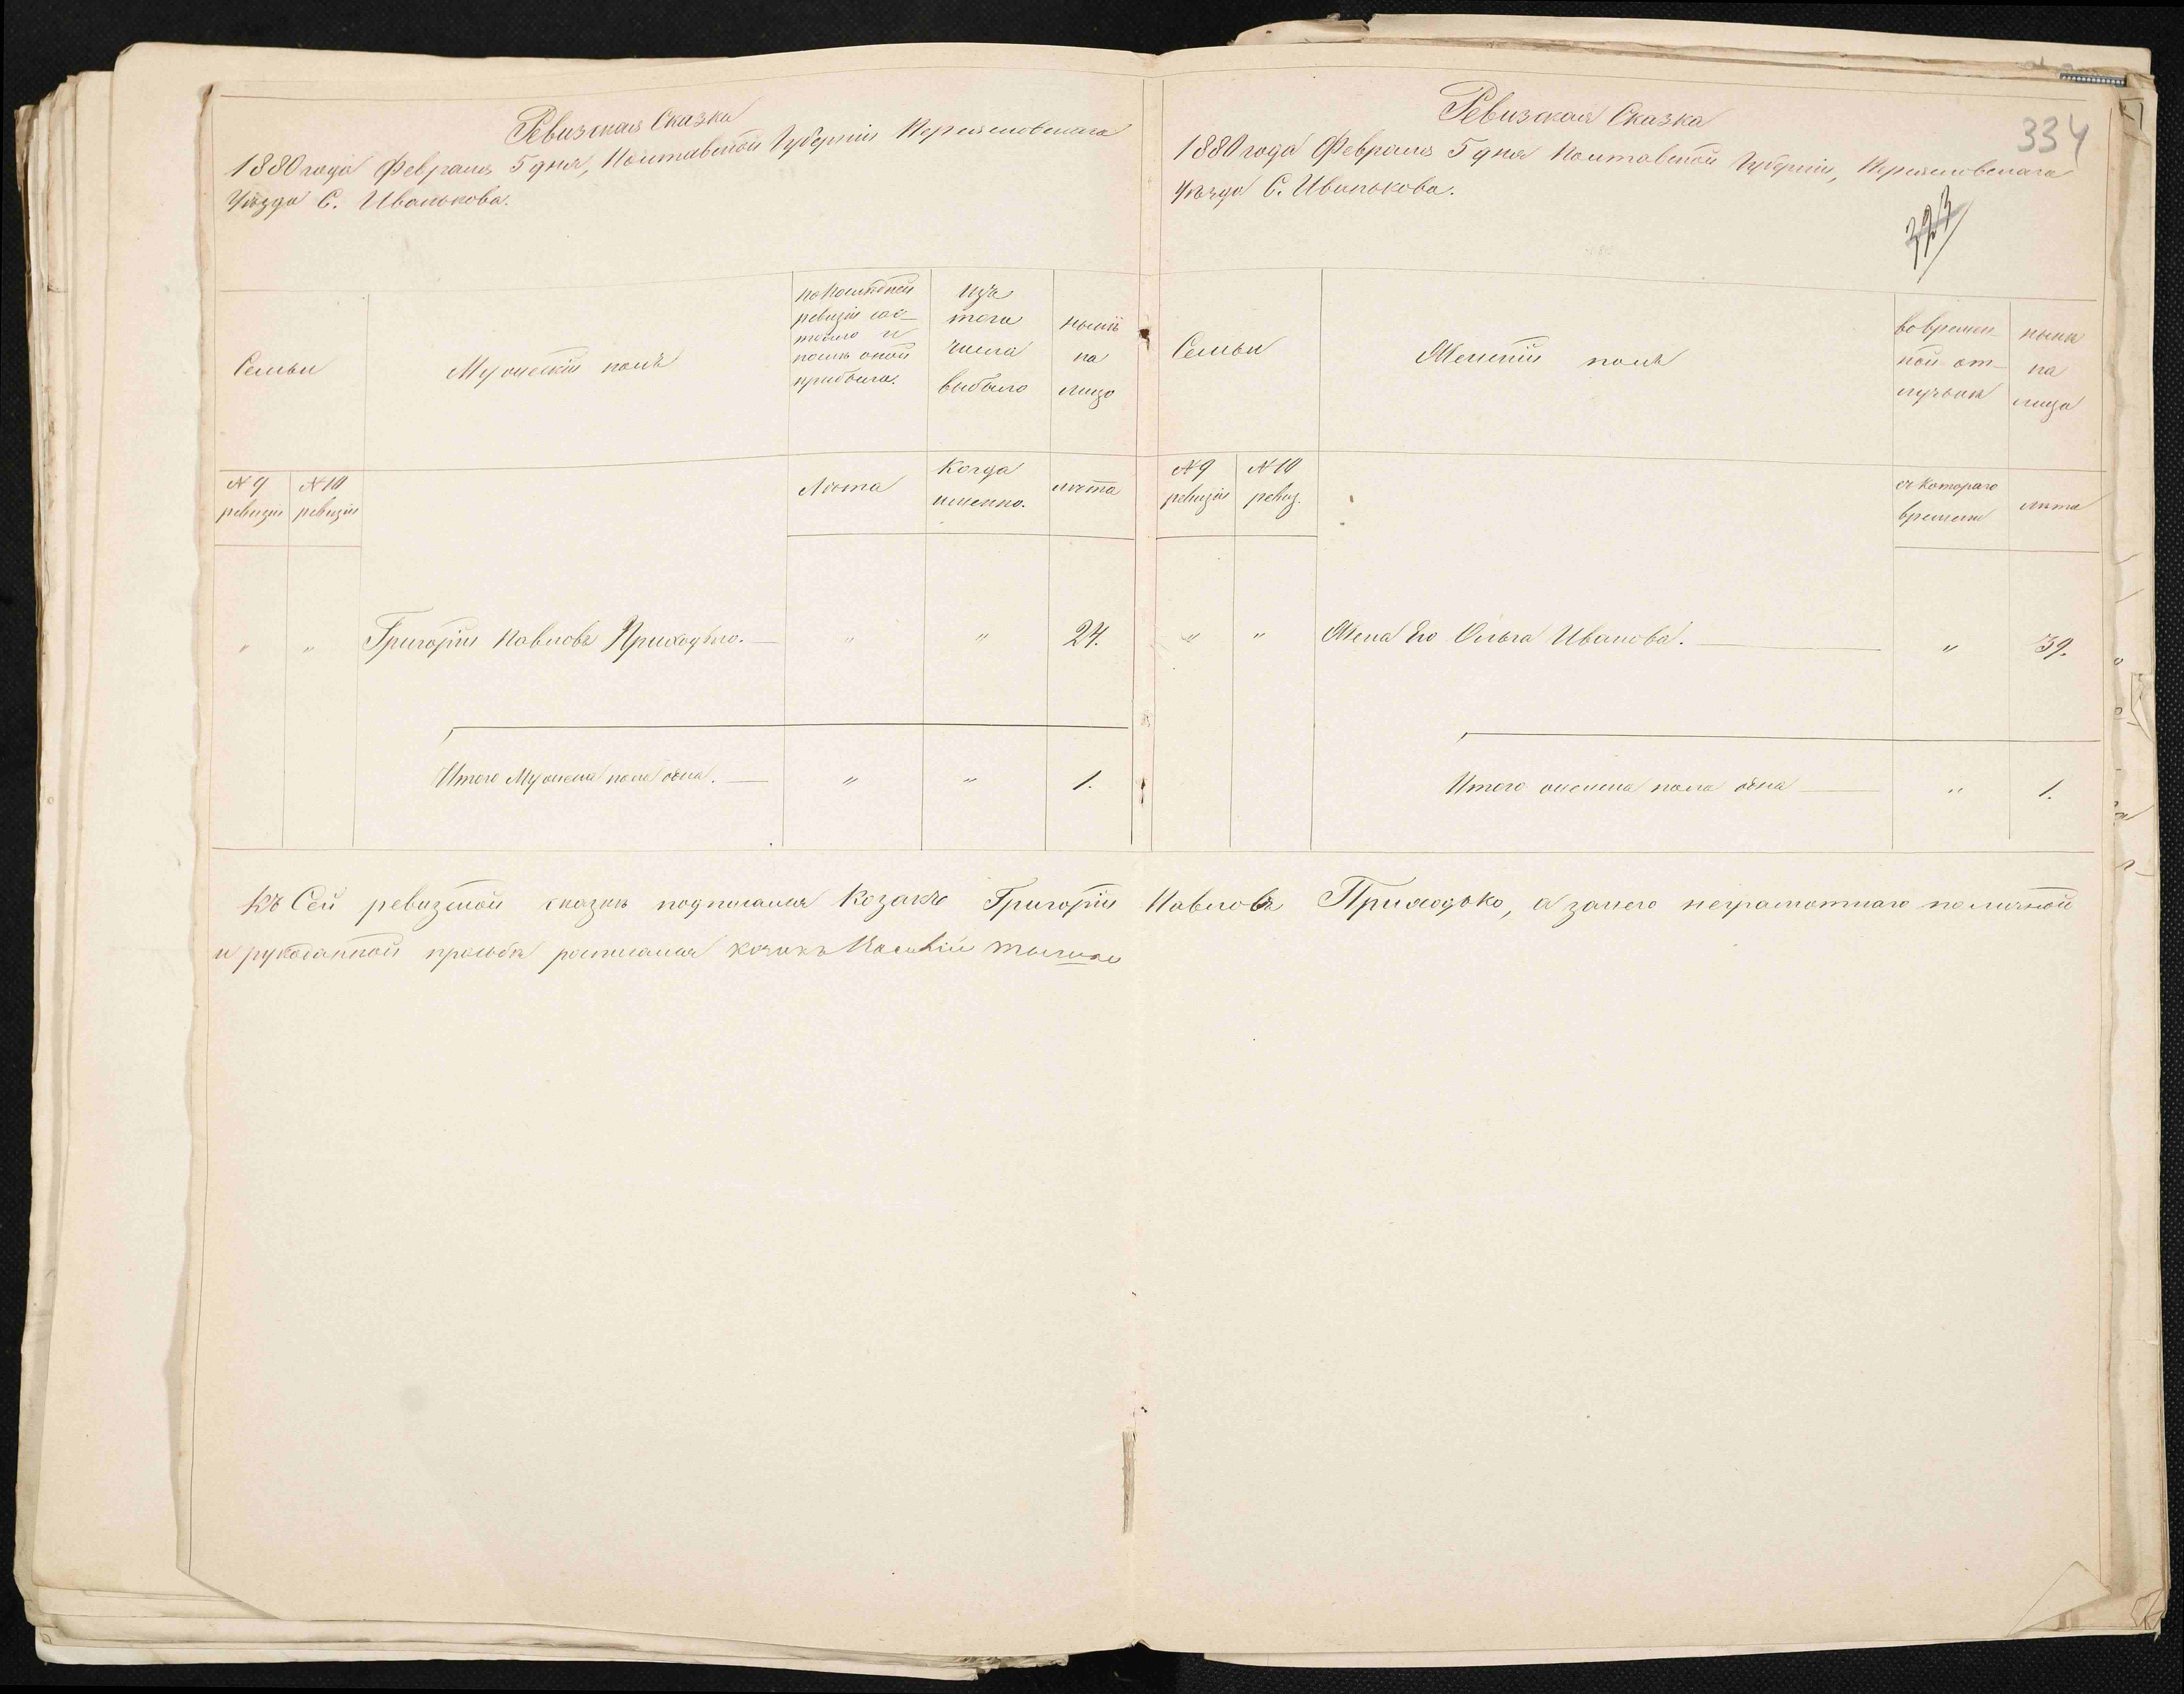 Ревизская Сказка
1880 года Февраля 5 дня, Полтавской Губерніи Переясловскаго
Уѣзда С. Иванькова.
Семьи
Мужескій полъ
по послѣдней
ревизіи сос-
тояло и
послѣ оной
прибыло.
изъ
того
числа
выбыло
нынѣ
на
лицо
№ 9
ревизіи
№ 10
ревизіи
Лѣта
Когда
именно.
лѣта
" " Григорій Павловъ Приходько. — " " 24.
Итого Мужска пола одна. — " " 1.
Ревизская Сказка
334
1880 года Февраля 5 дня Полтавской Губерніи, Переясловскаго
Уѣзда С. Иванькова.
323
Семьи
Женскій полъ
во времен-
ной от-
лучкѣ
нынѣ
на
лицо
№ 9
ревизіи
№ 10
ревиз.
съ котораго
времени
лѣта
" " Жена Его Ольга Иванова. — " 39.
Итого женска пола одна — " 1.
Къ Сей ревизской сказкѣ подписался Козакъ Григорій Павловъ Приходько, а за него неграмотнаго по личной
и рукоданной просьбѣ росписался козакъ